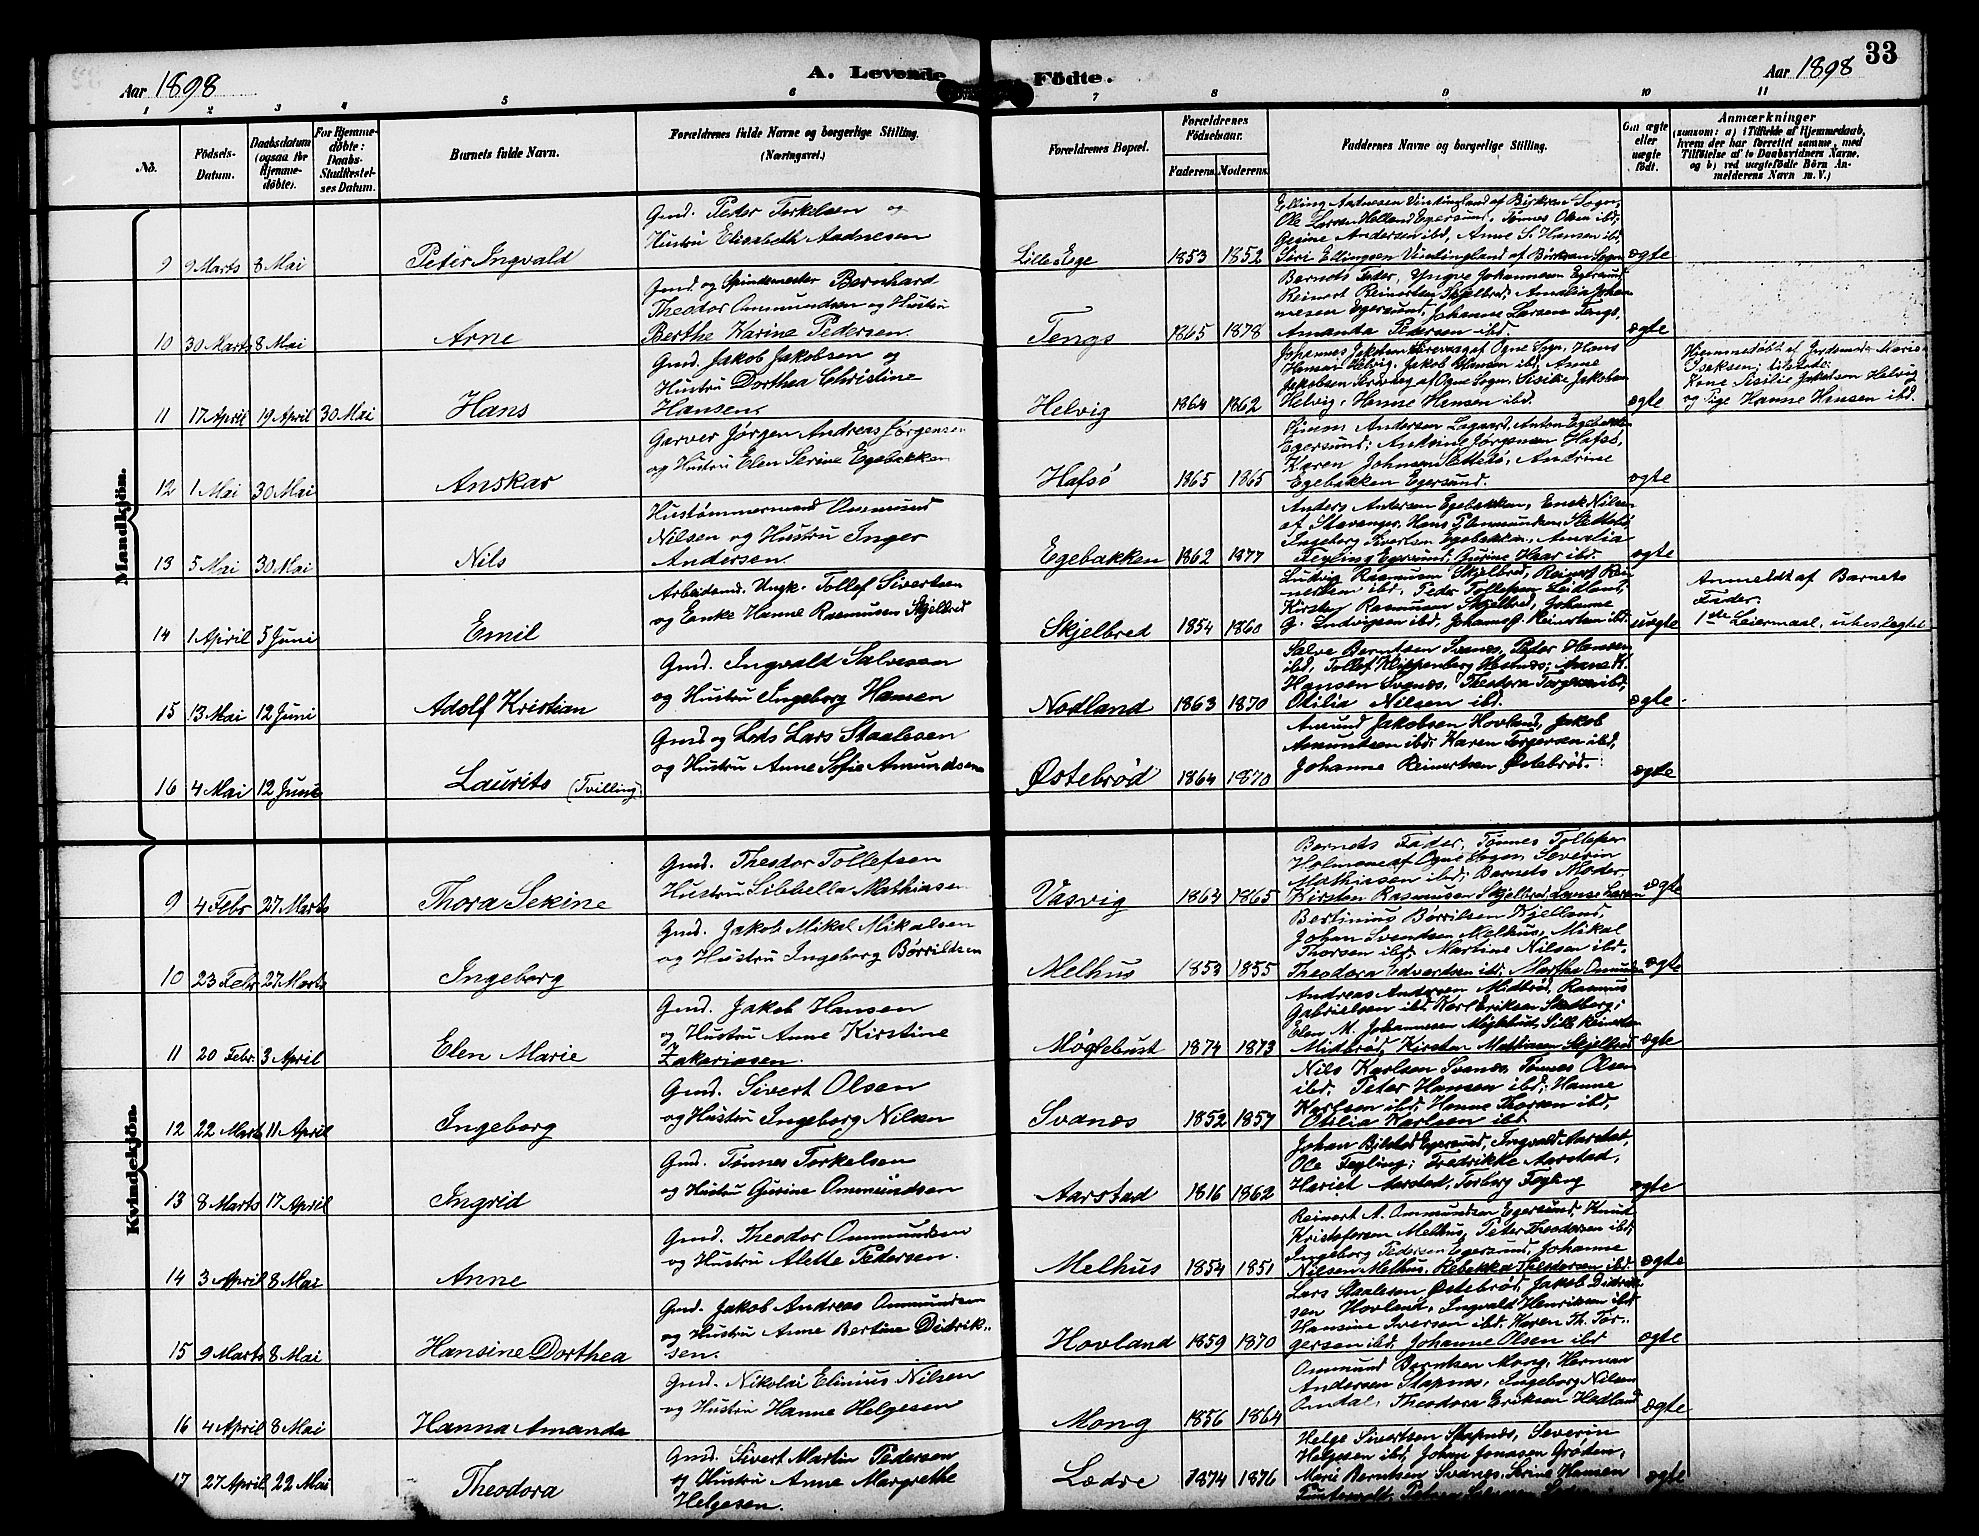 33
Aar 1898
A. Levende Födte.
Aar 1898
1 2 3 4 5 6 7 8 9 10 11
No.
Födsels-
Datum.
Daabsdatum
(ogsaa for
Hjemme-
døbte).
For Hjemme-
døbte:
Daabs-
Stadfæstel-
ses Datum.
Barnets fulde Navn.
Forældrenes fulde Navne og borgerlige Stilling.
(Næringsvei.)
Forældrenes Bopæl.
Forældrenes
Födselsaar.
Faderens. Moderens.
Faddernes Navne og borgerlige Stilling.
Om ægte
eller
uægte
født.
Anmærkninger
(saasom: a) i Tilfælde af Hjemmedaab,
hvem der har forrettet samme, med
Tilføielse af to Daabsvidners Navne,
og b) ved uægtefødte Börn An-
melderens Navn m. V.)
Mandkjön.
9 9 Marts 8 Mai Peter Ingvald
Gmd. Peter Torkelsen og
Hustru Elisabeth Aadnesen
Lille Ege 1853 1852
Ole Larsen Helland Egersund, Tønnes Olsen ibd,
Gesine Andersen ibd, Anne S. Hansen ibd,
ægte
10 30 Marts 8 Mai Arne
Gmd. og Spindemester Bernhard
Theodor Ommundsen og Hustru
Berthe Karine Pedersen
Tengs 1865 1878
Barnets Fader, Yngve Johannesen Egersund
Reinert Reinertsen Skjelbred, Amalia Johan
nesen Egersund, Johanne Larsen Tengs,
Amanda Pedersen ibd.
ægte
11 17 April 19 April 30 Mai Hans
Gmd. Jakob Jakobsen og
Hustru Dorthea Christine
Hansen
Helvig 1864 1862
Hansen Helvig, Jakob Hansen ibd, Anne
Helvig, Hanne Hansen ibd.
ægte
Hjemmedøbt af Jordemoder Marie
Isaksen; tilstede:
Kone Sisilie Jakobsen Helvig
og Pige Hanne Hansen ibd.
12 1 Mai 30 Mai Anskar
Garver Jørgen Andreas Jørgensen
og Hustru Elen Serine Egebakken
Hafsø 1865 1865
Egersund; Antrine Jørgensen Hafsø,
Karen Johnsen Slettebø, Andrine
Egebakken Egersund.
ægte
13 5 Mai 30 Mai Nils
Hustømmermand Ommund
Nilsen og Hustru Inger
Andersen
Egebakken 1862 1877
Anders Andersen Egebakken, Enok Nilsen
af Stavanger, Hans Slettebø
Ingeborg Sivertsen Egebakken, Amalia
Fegling Egersund, ibd.
ægte
14 1 April 5 Juni Emil
Arbeidsmd. Ungk. Tollef Sivertsen
og Enke Hanne Rasmusen Skjelbred
Skjelbred 1854 1860
Ludvig Rasmusen Skjelbred, Reinert Rei-
nertsen ibd, Peder Tollefsen Leidland,
Kirsten Rasmusen Skjelbred, Johanne
G. Ludvigsen ibd, Johanne J. Reinertsen ibd.
uægte
Anmeldt af Barnets
Fader.
1ste Leiermaal, ubeslegtet
15 13 Mai 12 Juni Adolf Kristian
Gmd. Ingvald Salvesen
og Hustru Ingeborg Hansen
Nodland 1863 1870
Salve Berntsen Svanes, Peder Hansen
ibd, Tollef Klippenberg Anna K.
Hansen Svanes, Theodora Torgersen ibd,
Otilia Nilsen ibd.
ægte
16 4 Mai 12 Juni Laurits (Tvilling)
Gmd og Lods Lars Staalesen
og Hustru Anne Sofie Amundsen
Østebrød 1864 1870
Amund Jakobsen Hovland, Jakob
Amundsen ibd, Karen Torgersen ibd,
Johanne Reinertsen Østebrød.
ægte
Kvindekjön.
9 4 Febr 27 Marts Thora Sekine
Gmd. Theodor Tollefsen
Hustru Sibbella Mathiasen
Vasvig 1864 1865
Barnets Fader, Tønnes Tollefsen
Holmane af Ogne Sogn, Severin
Mathiasen ibd; Barnets Moder
Kirsten Rasmusen Skjelbred,
ægte
10 23 Febr 27 Marts Ingeborg
Gmd. Jakob Mikal Mikalsen
og Hustru Ingeborg Børrildsen
Melhus 1853 1855
Bertinius Børrilsen Kjelland,
Johan Svendsen Melhus, Mikal
Thorsen ibd, Martine Nilsen ibd.
Theodora Edvardsen ibd, Martha Ommundsen
ægte
11 20 Febr. 3 April Elen Marie
Gmd. Jakob Hansen
og Hustru Anne Kirstine
Zakariasen.
Møglebust 1874 1873
Andreas Andersen Midbrød, Rasmus
Gabrielsen ibd, Karl Eriksen Sandberg;
Elen M. Johannesen Møglebust,
Midbrød, Kirsten Mathiasen Skjelbred
ægte
12 22 Marts 11 April Ingeborg
Gmd. Sivert Olsen
og Hustru Ingeborg Nilsen
Svanes 1852 1857
Nils Karlsen Svanes, Tønnes Olsen
ibd, Peter Hansen ibd; Hanne
Karlsen ibd, Hanne Thorsen ibd,
Otilia Karlsen ibd.
13 8 Marts 17 April Ingrid
Gmd. Tønnes Torkelsen
og Hustru Gurine Ommundsen
Aarstad 1816 1862
Johan Bilstad Egersund, Ingvald Aarstad,
Ole Fegling; Fredrikke Aarstad,
Hariet Aarstad, Torborg Fegling
ægte
14 3 April 8 Mai Anne
Gmd. Theodor Ommundsen
og Hustru Alette Pedersen.
Melhus 1854 1851
Reinert A. Ommundsen Egersund, Knut
Kristofersen Melhus, Peter Theodorsen ibd,
Ingeborg Pedersen Egersund, Johanne
Nilsen Melhus, Rebekka Theodorsen ibd
ægte
15 9 Marts 8 Mai Hansine Dorthea
Gmd. Jakob Andreas Ommundsen
og Hustru Anne Bertine Didrik-
sen.
Hovland 1859 1870
Lars Staalesen Østebrød, Jakob Didrik-
sen Hovland, Ingvald Henriksen ibd
Hansine Iversen ibd. Karen Th. Tor-
gersen ibd, Johanne Olsen ibd
ægte
16 4 April 8 Mai Hanna Amanda
Gmd. Nikolai Elinius Nilsen
og Hustru Hanne Helgesen
Mong 1856 1864
Ommund Berntsen Mong, Herman
Andersen Stapnes, Ingeborg Nilsen
Omdal, Theodora Eriksen Hadland
ægte
17 27 April 22 Mai Theodora
Gmd. Sivert Martin Pedersen
og Hustru Anne Margrethe
Helgesen.
Lædre 1874 1876
Helge Sivertsen Stapnes, Severin
Helgesen ibd, Johan Jonasen Grøden,
Marie Berntsen Svanes, Serine Hansen
ægte